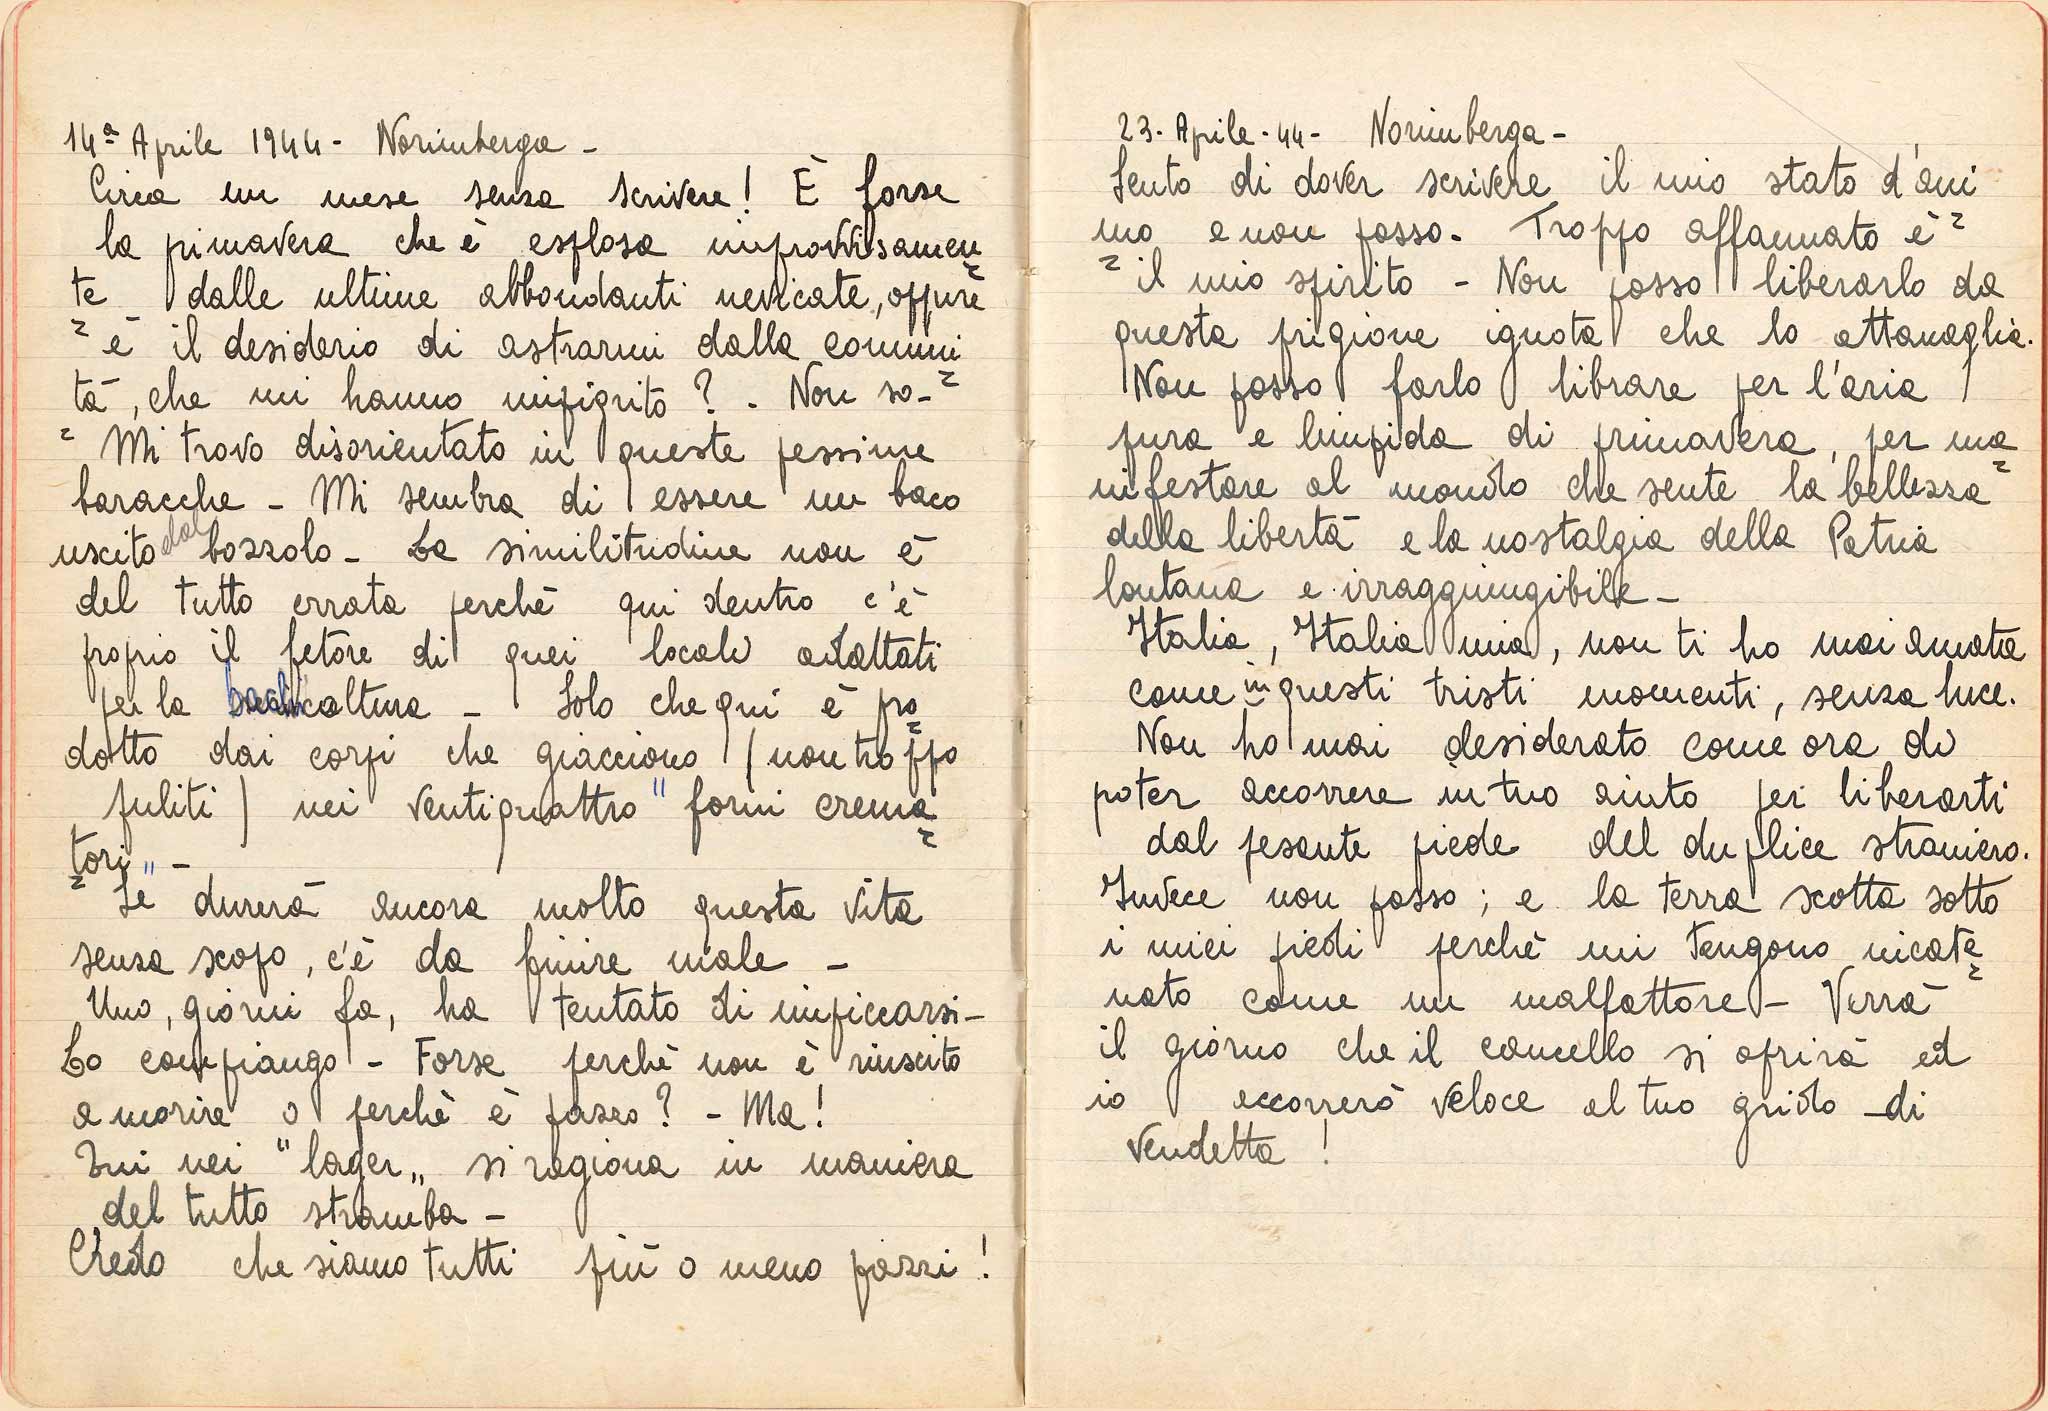 14ª Aprile 1944 - Norimberga -
Circa un mese senza scrivere! È forse
la primavera che è esplosa improvvisamen
te dalle ultime abbondanti nevicate, oppure
= è il desiderio di astrarmi dalla comuni
tà, che mi hanno impigrito? - Non so -
= Mi trovo disorientato in queste pessime
baracche - Mi sembra di essere un baco
uscito dal bozzolo - La similitudine non è
del tutto errata perchè qui dentro c'è
proprio il fetore di quei locali adattati
per la bachicoltura - Solo che qui è pro
dotto dai corpi che giacciono (non troppo
puliti) nei ventiquattro "forni crema=
=tori" -
Se durerà ancora molto questa vita
senza scopo, c'è da finire male -
Uno, giorni fa, ha tentato di impiccarsi -
Lo compiango - Forse perchè non è riuscito
a morire o perchè è pazzo? - Ma!
Qui nei "lager" si ragiona in maniera
del tutto stramba -
Credo che siamo tutti più o meno pazzi!
23 - Aprile - 44 - Norimberga -
Sento di dover scrivere il mio stato d'ani
mo e non posso. Troppo affannato è =
= il mio spirito - Non posso liberarlo da
questa prigione ignota che lo attanaglia.
Non posso farlo librare per l'aria
pura e limpida di primavera, per ma=
nifestare al mondo che sente la bellezza
della libertà e la nostalgia della Patria
lontana e irraggiungibile -
Italia, Italia mia, non ti ho mai amata
come in questi tristi momenti, senza luce.
Non ho mai desiderato come ora di
poter accorrere in tuo aiuto per liberarti
dal pesante piede del duplice straniero.
Invece non posso; e la terra scotta sotto
i miei piedi perchè mi tengono incate=
nato come un malfattore - Verrà
il giorno che il cancello si aprirà ed
io accorrerò veloce al tuo grido di
vendetta!